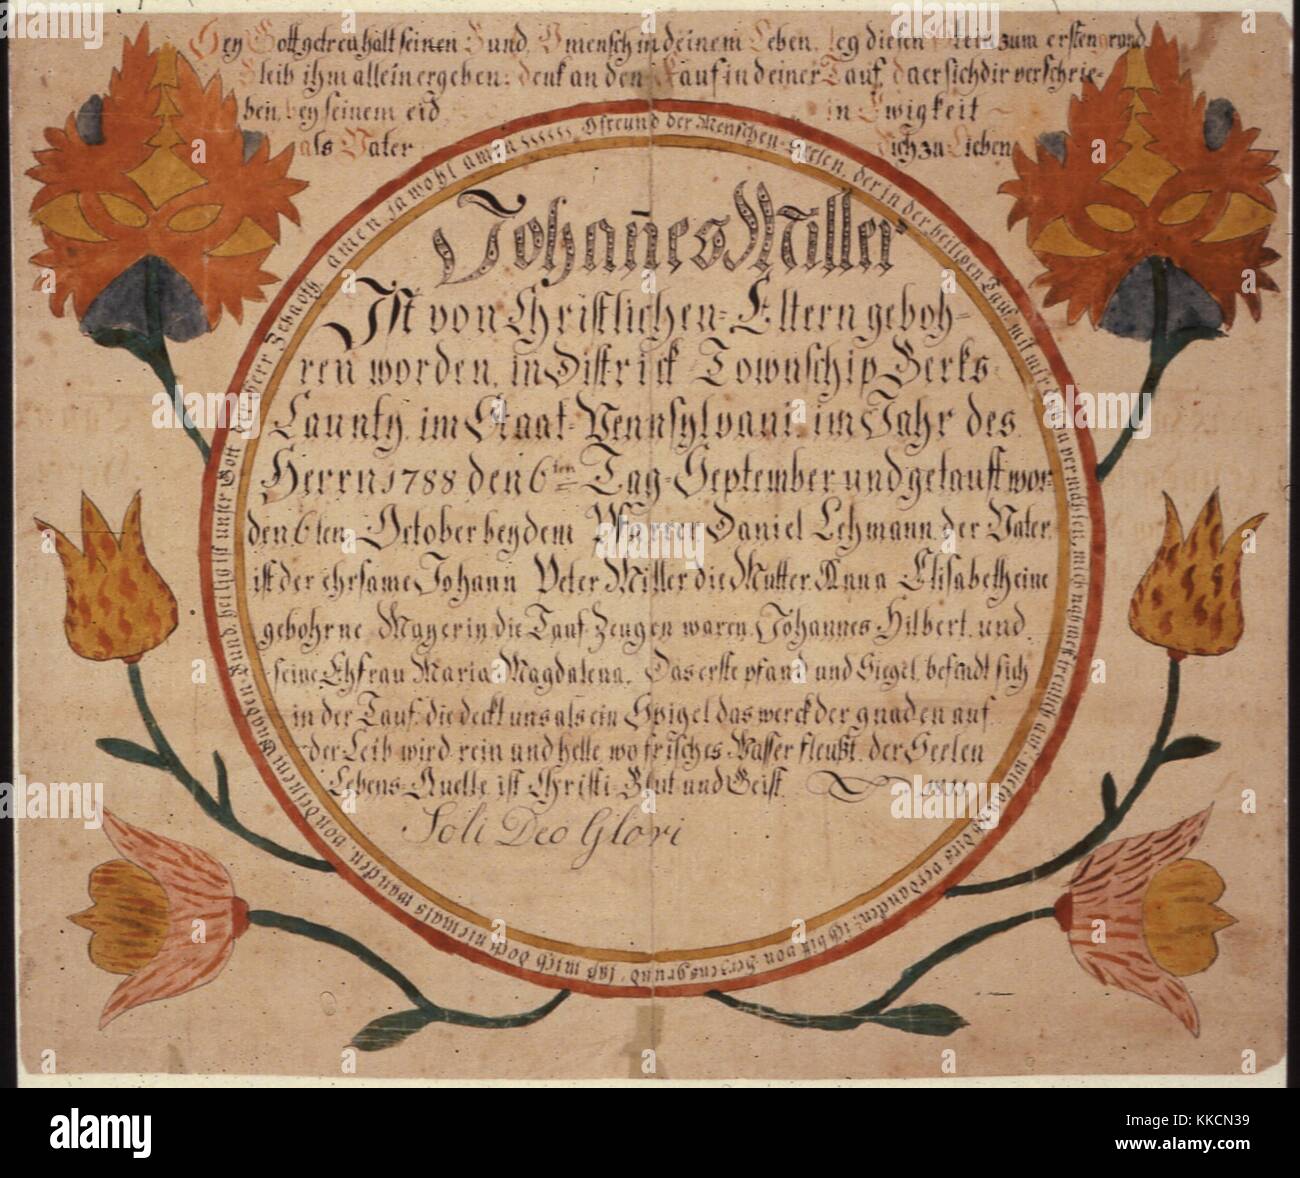 Sey Gott getreu halt seinen Bund, O mensch in deinem Leben, leg diesen Stein zum ersten grund
Bleib ihm allein ergeben: denk an den Kauf in deiner Tauf, da er sich dir verschrie-
ben, bey seinem eid in Ewigkeit
als Vater dich zu Lieben
O freund der Menschen-Seelen, der in der heiligen Tauf mit mir dich zu vermählen, mich nahmest treulich auf
ich bit von Hertzensgrund, laß mich doch niemals wancken, von deinem Gnaden-Bund, heilig ist unser Gott der Herr Zebaoth amen ja wohl amen
Johañes Miller
Ist von Christlichen-Eltern geboh-
ren worden, in District Townschip Berks
Caunty, im Staat-Pennsylvani, im Jahr des
Herrn 1788 den 6ten Tag-September und getauft wor-
den 6ten October bey dem Pfarrer Daniel Lehmann, der Vater
ist der ehrsame Johann Peter Miller die Mutter Anna Elisabeth eine
gebohrne Mayerin, die Tauf-Zeugen waren, Johannes Hilbert, und
seine Ehfrau Maria Magdalena, Das erste pfand und Siegel, befindt sich
in der Tauf, die deckt uns als ein Spigel das werck der gnaden auf
der Leib wird rein und helle, wo frisches-Wasser fleußt, der Seelen
Lebens-Quelle, ist Christi-Blut und Geist
Soli Deo Glori
alamy
Image ID: KKCN39
www.alamy.com